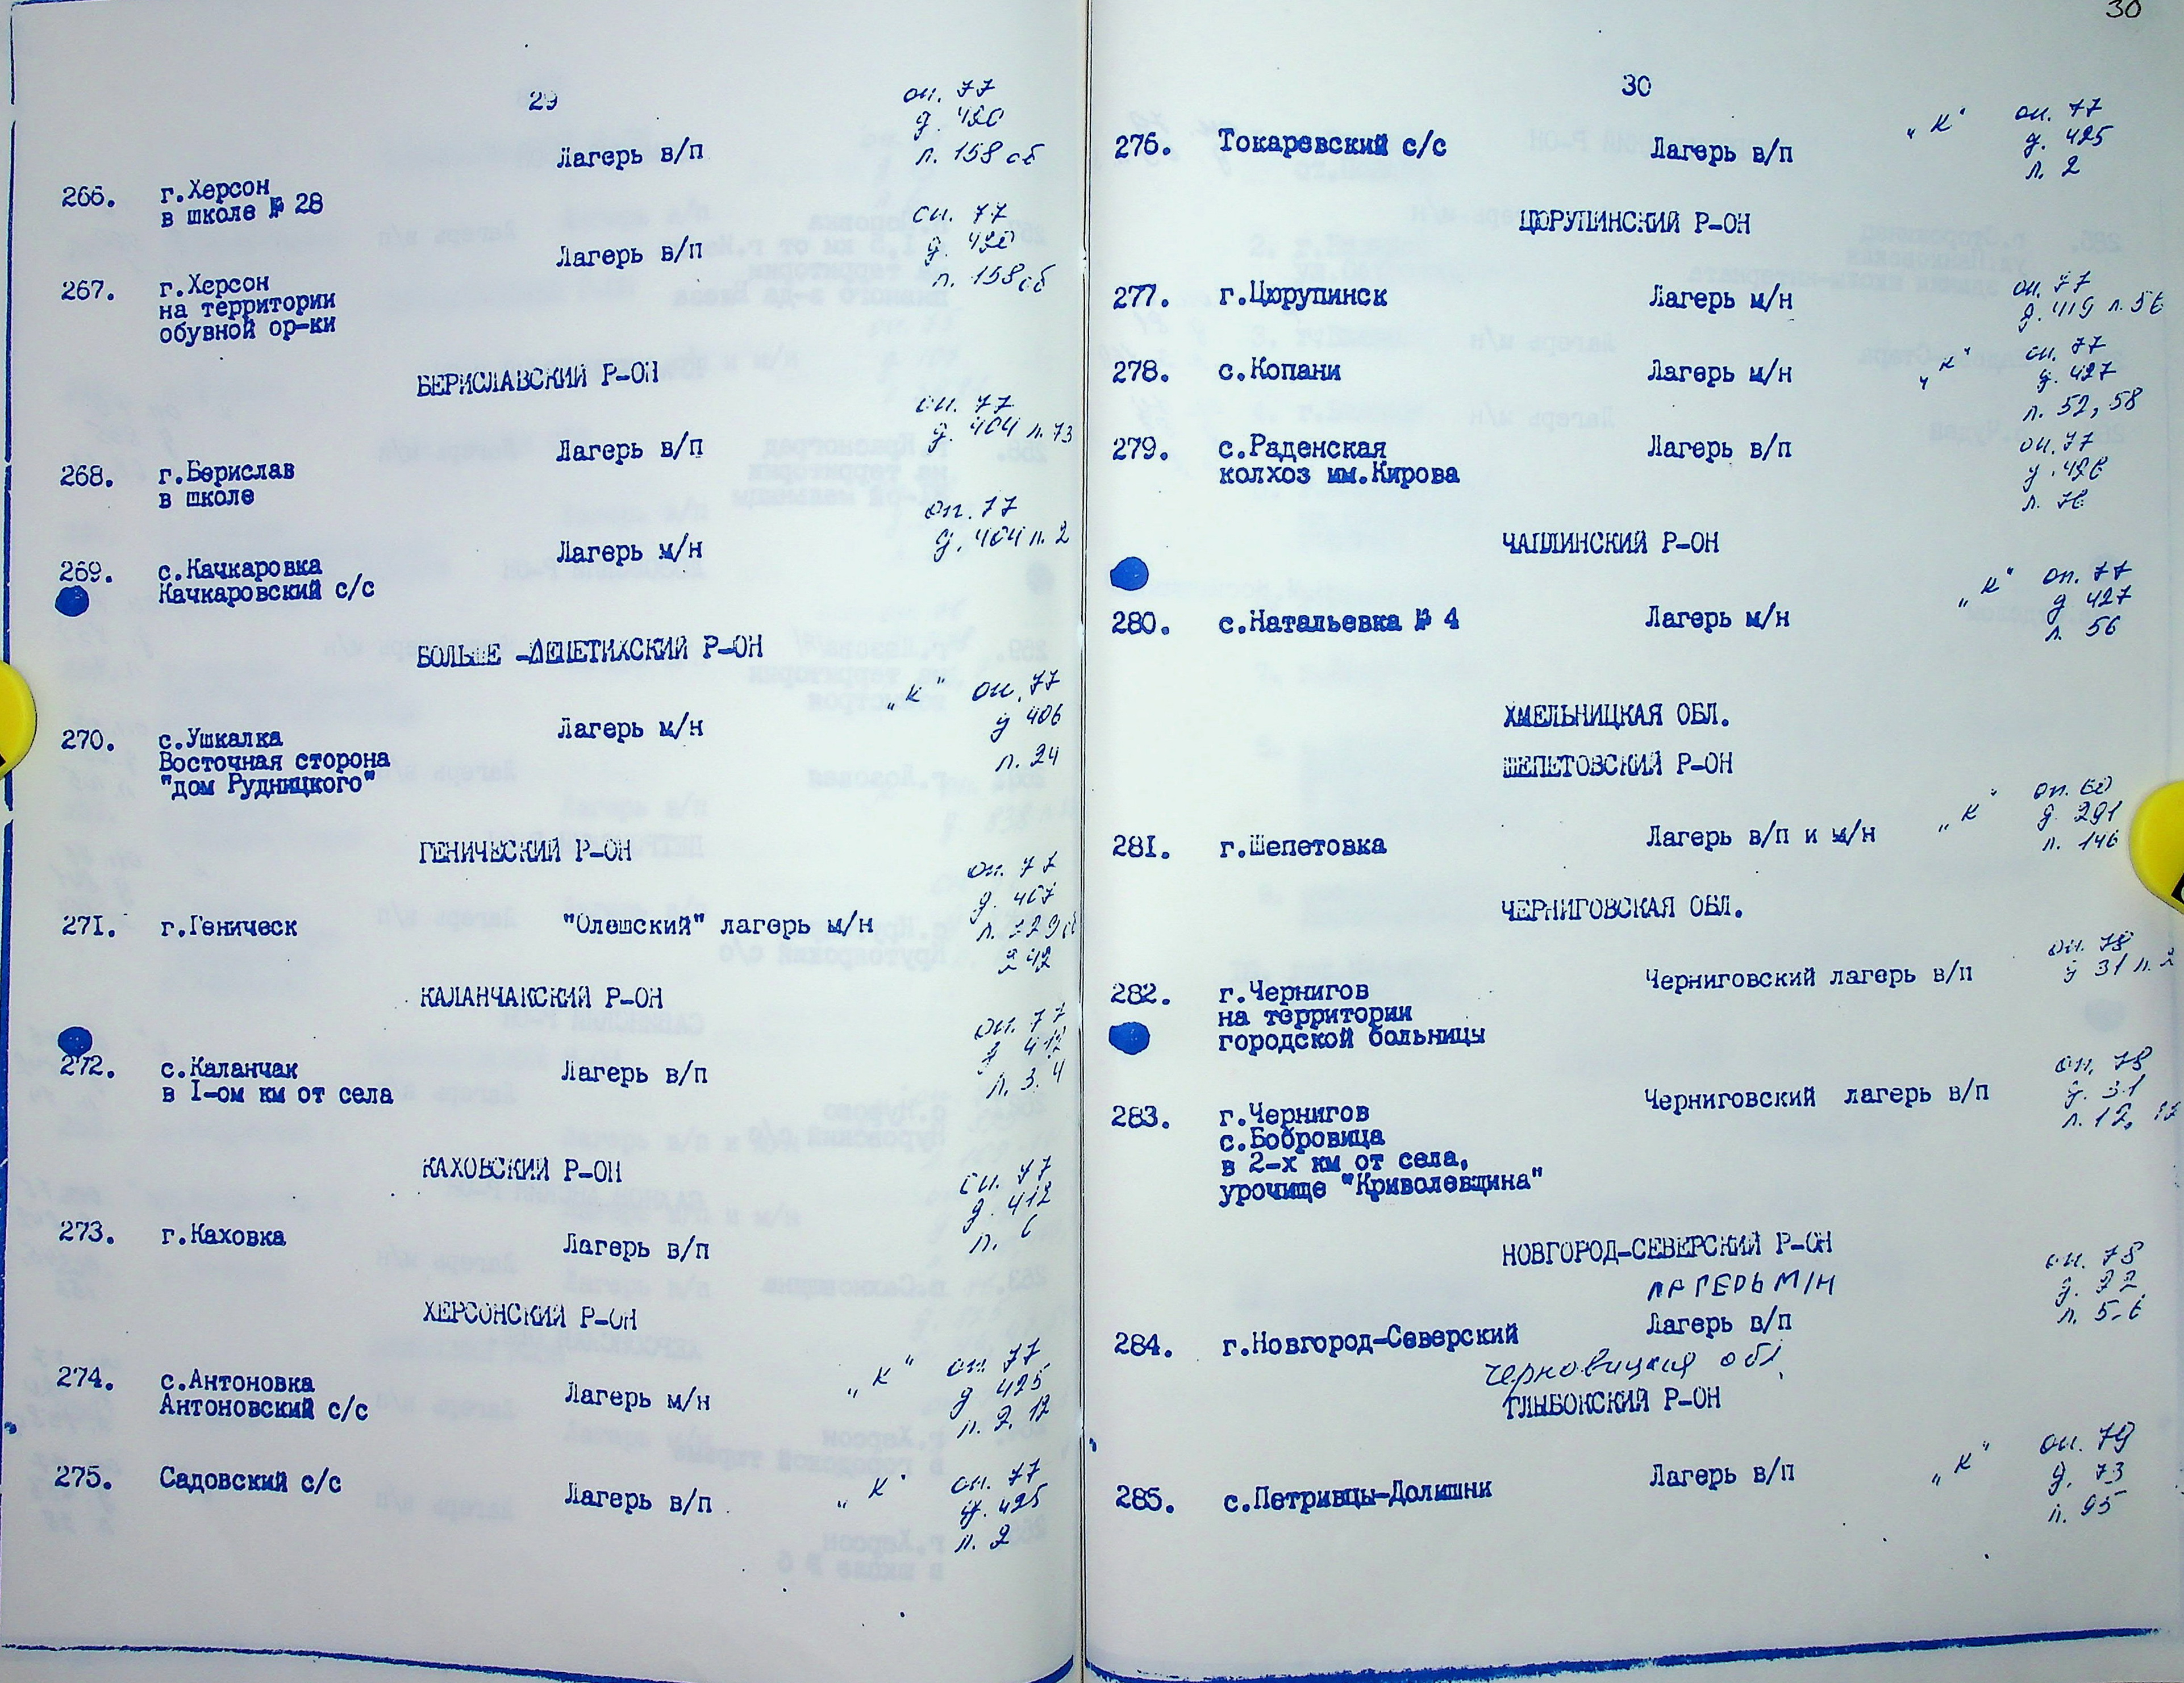 30
29
оп. 77
д. 420
л. 158 об
Лагерь в/п
266. г.Херсон
в школе № 28
оп. 77
д. 420
л. 158 об
Лагерь в/п
267. г.Херсон
на территории
обувной ф-ки
БЕРИСЛАВСКИЙ Р-ОН
оп. 77
д. 404 л. 73
Лагерь в/п
268. г.Берислав
в школе
оп. 77
д. 404 л. 2
Лагерь м/н
269. с.Качкаровка
Качкаровский с/с
БОЛЬШЕ-ЛЕПЕТИХСКИЙ Р-ОН
"К" оп. 77
д 406
л. 24
270. с.Ушкалка Лагерь м/н
Восточная сторона
"дом Рудницкого"
ГЕНИЧЕСКИЙ Р-ОН
оп. 77
д. 407
271. г.Геническ "Олешский" лагерь м/н
КАЛАНЧАКСКИЙ Р-ОН
оп. 77
л. 3. 4
272. с.Каланчак Лагерь в/п
в I-ом км от села
КАХОВСКИЙ Р-ОН
оп. 77
д. 412
л. 6
273. г.Каховка Лагерь в/п
ХЕРСОНСКИЙ Р-ОН
"К" оп. 77
д 425
л. 2, 12
274. с.Антоновка Лагерь м/н
Антоновский с/с
"К" оп. 77
д. 425
л. 2
275. Садовский с/с Лагерь в/п
30
"К" оп. 77
д. 425
л. 2
276. Токаревский с/с Лагерь в/п
ЦЮРУПИНСКИЙ Р-ОН
оп. 77
д. 419 л. 56
277. г.Цюрупинск Лагерь м/н
"К" оп. 77
д. 427
л. 52, 58
278. с.Копани Лагерь м/н
оп. 77
д. 426
л. 76
279. с.Раденская Лагерь в/п
колхоз им.Кирова
ЧАПЛИНСКИЙ Р-ОН
"К" оп. 77
д 427
л. 56
280. с.Натальевка № 4 Лагерь м/н
ХМЕЛЬНИЦКАЯ ОБЛ.
ШЕПЕТОВСКИЙ Р-ОН
"К" оп. 60
д. 291
л. 146
281. г.Шепетовка Лагерь в/п и м/н
ЧЕРНИГОВСКАЯ ОБЛ.
оп. 78
д 31 л. 2
Черниговский лагерь в/п
282. г.Чернигов
на территории
городской больницы
оп. 78
д. 31
л. 12,
Черниговский лагерь в/п
283. г.Чернигов
с.Бобровица
в 2-х км от села,
урочище "Криволевщина"
НОВГОРОД-СЕВЕРСКИЙ Р-ОН
оп. 78
д. 22
л. 5-6
ЛАГЕРЬ М/Н
Лагерь в/п
284. г.Новгород-Северский
Черновицкая обл.
ГЛЫБОКСКИЙ Р-ОН
"К" оп. 79
д. 73
л. 95
285. с.Петривцы-Долишни Лагерь в/п